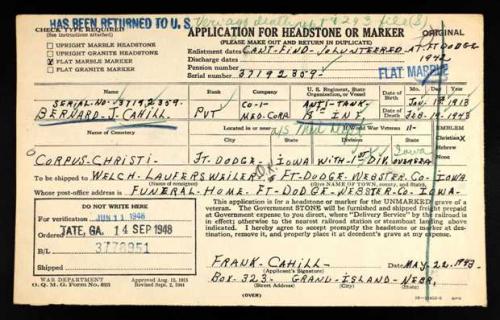 HAS BEEN RETURNED TO U.S.
CHECK TYPE REQUIRED
(See instructions attached)
UPRIGHT MARBLE HEADSTONE
UPRIGHT GRANITE HEADSTONE
X FLAT MARBLE MARKER
FLAT GRANITE MARKER
APPLICATION FOR HEADSTONE OR MARKER
(PLEASE MAKE OUT AND RETURN IN DUPLICATE)
ORIGINAL
Enlistment dates CANT-FIND-VOLUNTEERED AT FT DODGE
Discharge dates 1942
Pension number
Serial number 37192309
FLAT MARBLE
SERIAL-NO-37192309
BERNARD-J-CAHILL
Rank
PVT
Company
CO-1-
MED-CORP
U.S. Regiment, State Organization, or Vessel
ANTI-TANK-
INF
Date of Birth
Date of Death
Month Day Year
JAN-1st 1913
FEB-19-1943
Name of Cemetery
Located in or near
World War II
EMBLEM
Christian
Hebrew
None
CORPUS-CHRISTI- FT. DODGE IOWA WITH-1st DIV OVERSEA
To be shipped to WELCH-LAUFERSWEILER FT-DODGE-WEBSTER-CO-IOWA
Whose post-office address is FUNERAL-HOME FT-DODGE-WEBSTER-CO-IOWA.
DO NOT WRITE HERE
For verification JUN 11 1948
TATE, GA. 14 SEP 1948
Ordered
B/L 3778951
Shipped
This application is for a headstone or marker for the UNMARKED grave of a veteran. The Government STONE will be furnished and shipped freight prepaid at Government expense to you direct, where "Delivery Service" by the railroad is in effect; otherwise to the nearest railroad station or steamboat landing above indicated. I hereby agree to accept promptly the headstone or marker at destination, remove it, and properly place it at decedent's grave at my expense.
FRANK-CAHILL-
(Applicant's Signature)
MAY-22-1948-
BOX-323 GRAND-ISLAND-NEBR.
(Street Address) (City) (State)
WAR DEPARTMENT
O. Q. M. G. Form No. 623
(OVER)